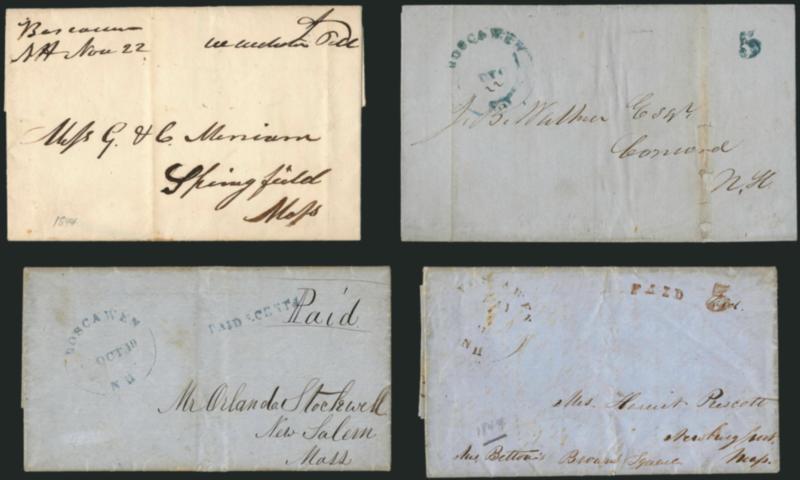 Boscawen
NH Nov 22
Mess G. & C. Merriam
Springfield
Mass
1844
BOSCAWEN
DEC
22
5
J. B. Walker Esqr.
Concord
N. H
BOSCAWEN
OCT 19
N H
PAID 5 CENTS
Paid
Mr Orlanda Stockwell
New Salem
Mass
BOSCAWEN
N H
PAID
5
Mrs. Harriet Prescott
Newburyport
Mrs Betton's Brown Square Mass.